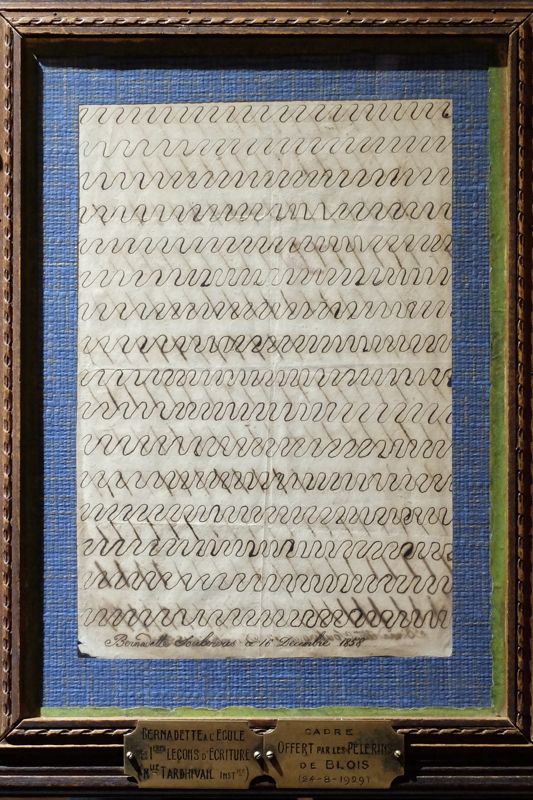 Bernadette Soubirous ce 16 Décembre 1858
BERNADETTE A L'ECOLE
1ères LEÇONS D'ECRITURE
(Mlle TARDHIVAIL INSTce)
CADRE
OFFERT PAR LES PÈLERINS
DE BLOIS
(24-8-1929)